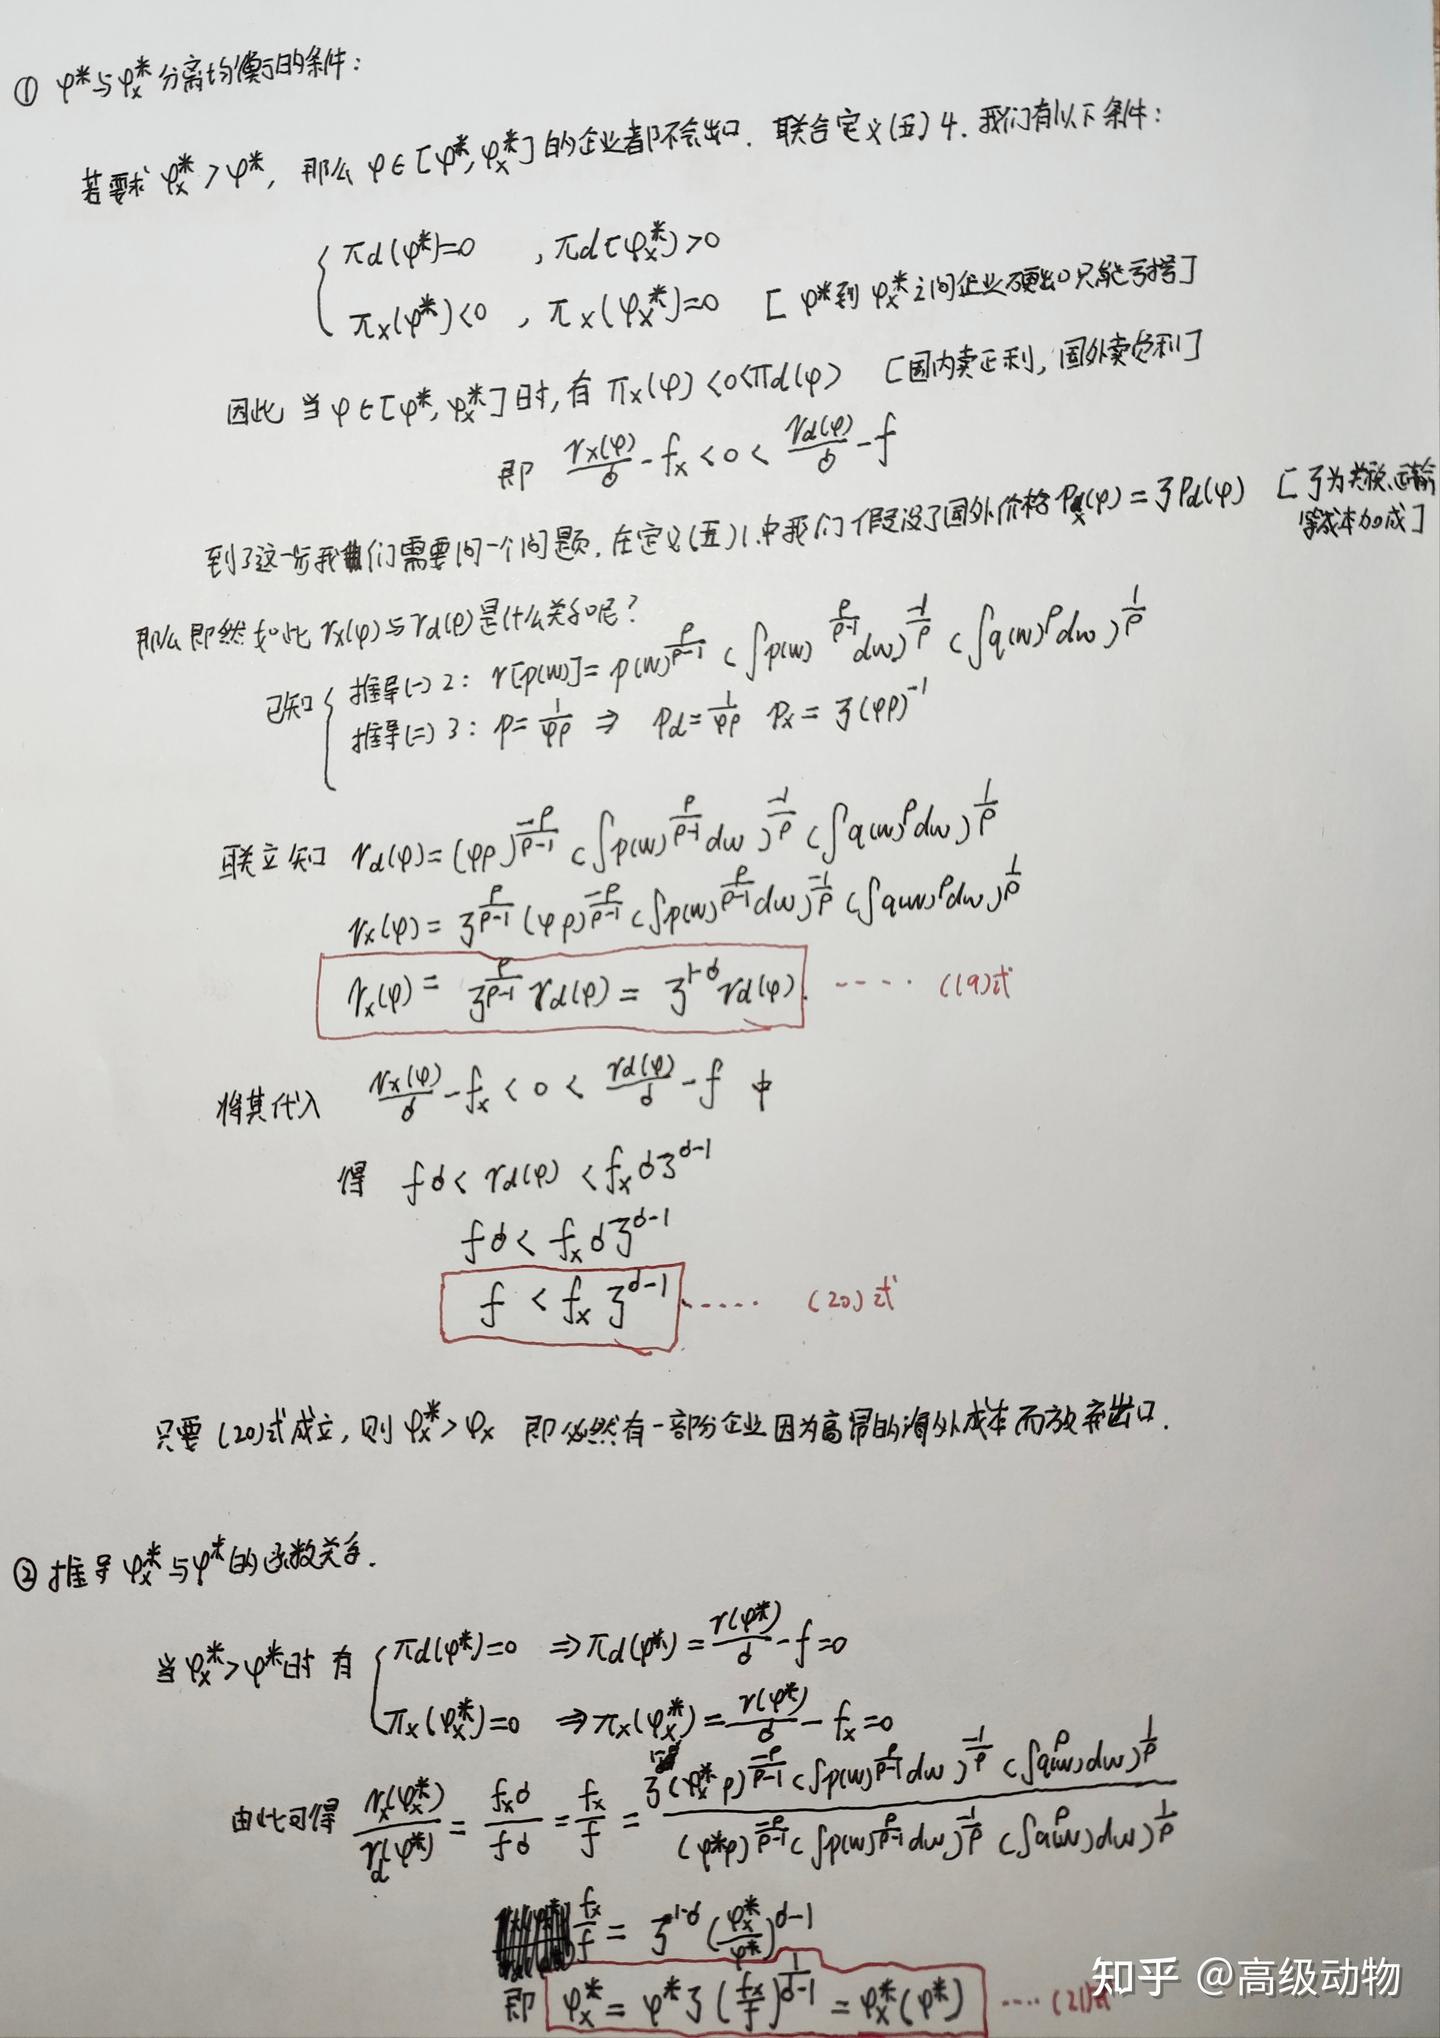 ① φ*与φₓ*分离均衡的条件：
若要求 φₓ*>φ*，那么 φ∈[φ*,φₓ*]的企业者都不会出口. 联合定义(五)4. 我们有以下条件：
{ πd(φ*)=0 , πd(φₓ*)>0
πₓ(φ*)<0 , πₓ(φₓ*)=0 [φ*到φₓ*之间企业硬出口只能亏损]
因此 当φ∈[φ*,φₓ*]时,有 πₓ(φ)<0<πd(φ) [国内卖正利,国外卖负利]
即 rₓ(φ)/σ - fₓ < 0 < rd(φ)/σ - f
到了这一步我们需要问一个问题. 在定义(五)1.中我们假设了国外价格Pₓ(φ)=ζPd(φ) [ζ为关税、运输
等成本加成]
那么即然如此 rₓ(φ)与rd(φ)是什么关系呢？
已知 { 推导(一)2: r[p(w)]=p(w)^(ρ/(ρ-1)) (∫p(w)^(ρ/(ρ-1))dw)^(-1/ρ) (∫q(w)^ρ dw)^(1/ρ)
推导(二)3: p=1/(φρ) ⇒ Pd=1/(φρ) Pₓ=ζ(φρ)^(-1)
联立知 rd(φ)=(φρ)^(-ρ/(ρ-1)) (∫p(w)^(ρ/(ρ-1))dw)^(-1/ρ) (∫q(w)^ρ dw)^(1/ρ)
rₓ(φ)=ζ^(ρ/(ρ-1)) (φρ)^(-ρ/(ρ-1)) (∫p(w)^(ρ/(ρ-1))dw)^(-1/ρ) (∫q(w)^ρ dw)^(1/ρ)
rₓ(φ)=ζ^(ρ/(ρ-1)) rd(φ)=ζ^(1-σ) rd(φ). ····· (19)式
将其代入 rₓ(φ)/σ - fₓ < 0 < rd(φ)/σ - f 中
得 fσ < rd(φ) < fₓσζ^(σ-1)
fσ < fₓσζ^(σ-1)
f < fₓζ^(σ-1) ····· (20)式
只要(20)式成立,则 φₓ*>φₓ 即必然有一部分企业因为高昂的海外成本而放弃出口.
② 推导φₓ*与φ*的函数关系.
当φₓ*>φ*时 有 { πd(φ*)=0 ⇒πd(φ*)=r(φ*)/σ - f=0
πₓ(φₓ*)=0 ⇒πₓ(φₓ*)=r(φ*)/σ - fₓ=0
由此可得 rₓ(φₓ*)/rd(φ*) = fₓσ/fσ = fₓ/f = ζ^(1-σ)(φₓ*ρ)^(-ρ/(ρ-1)) (∫p(w)^(ρ/(ρ-1))dw)^(-1/ρ) (∫q(w)^ρ dw)^(1/ρ) / (φ*ρ)^(-ρ/(ρ-1)) (∫p(w)^(ρ/(ρ-1))dw)^(-1/ρ) (∫q(w)^ρ dw)^(1/ρ)
fₓ/f = ζ^(1-σ) (φₓ*/φ*)^(σ-1)
即 φₓ*=φ*ζ(fₓ/f)^(1/(σ-1))=φₓ*(φ*) ····(21)式
知乎 @高级动物